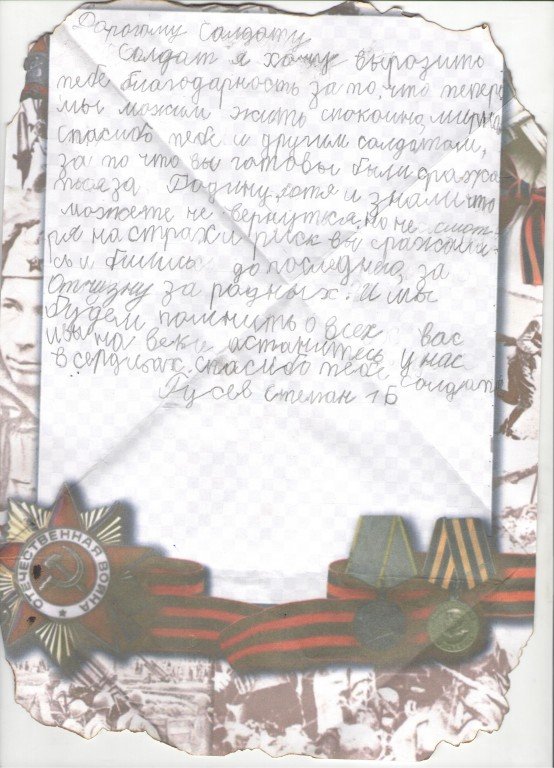 Дарогому Солдату
Солдат я хочу выразить
тебе благодарность за то, что теперь
мы можим жить спокойно, мирно
спасибо тебе и другим солдатам,
за то что вы готовы были сража-
ться за Родину хотя и знали что
можете не вернутся, но не смот-
ря на страх и риск вы сражали-
сь и бились до последнего за
Отчизну за радных. И мы
будем помнить о всех вас
и вы на веки останитесь у нас
в сердцах. спасибо тебе солдат
Гусев Степан 1 Б
ОТЕЧЕСТВЕННАЯ ВОЙНА